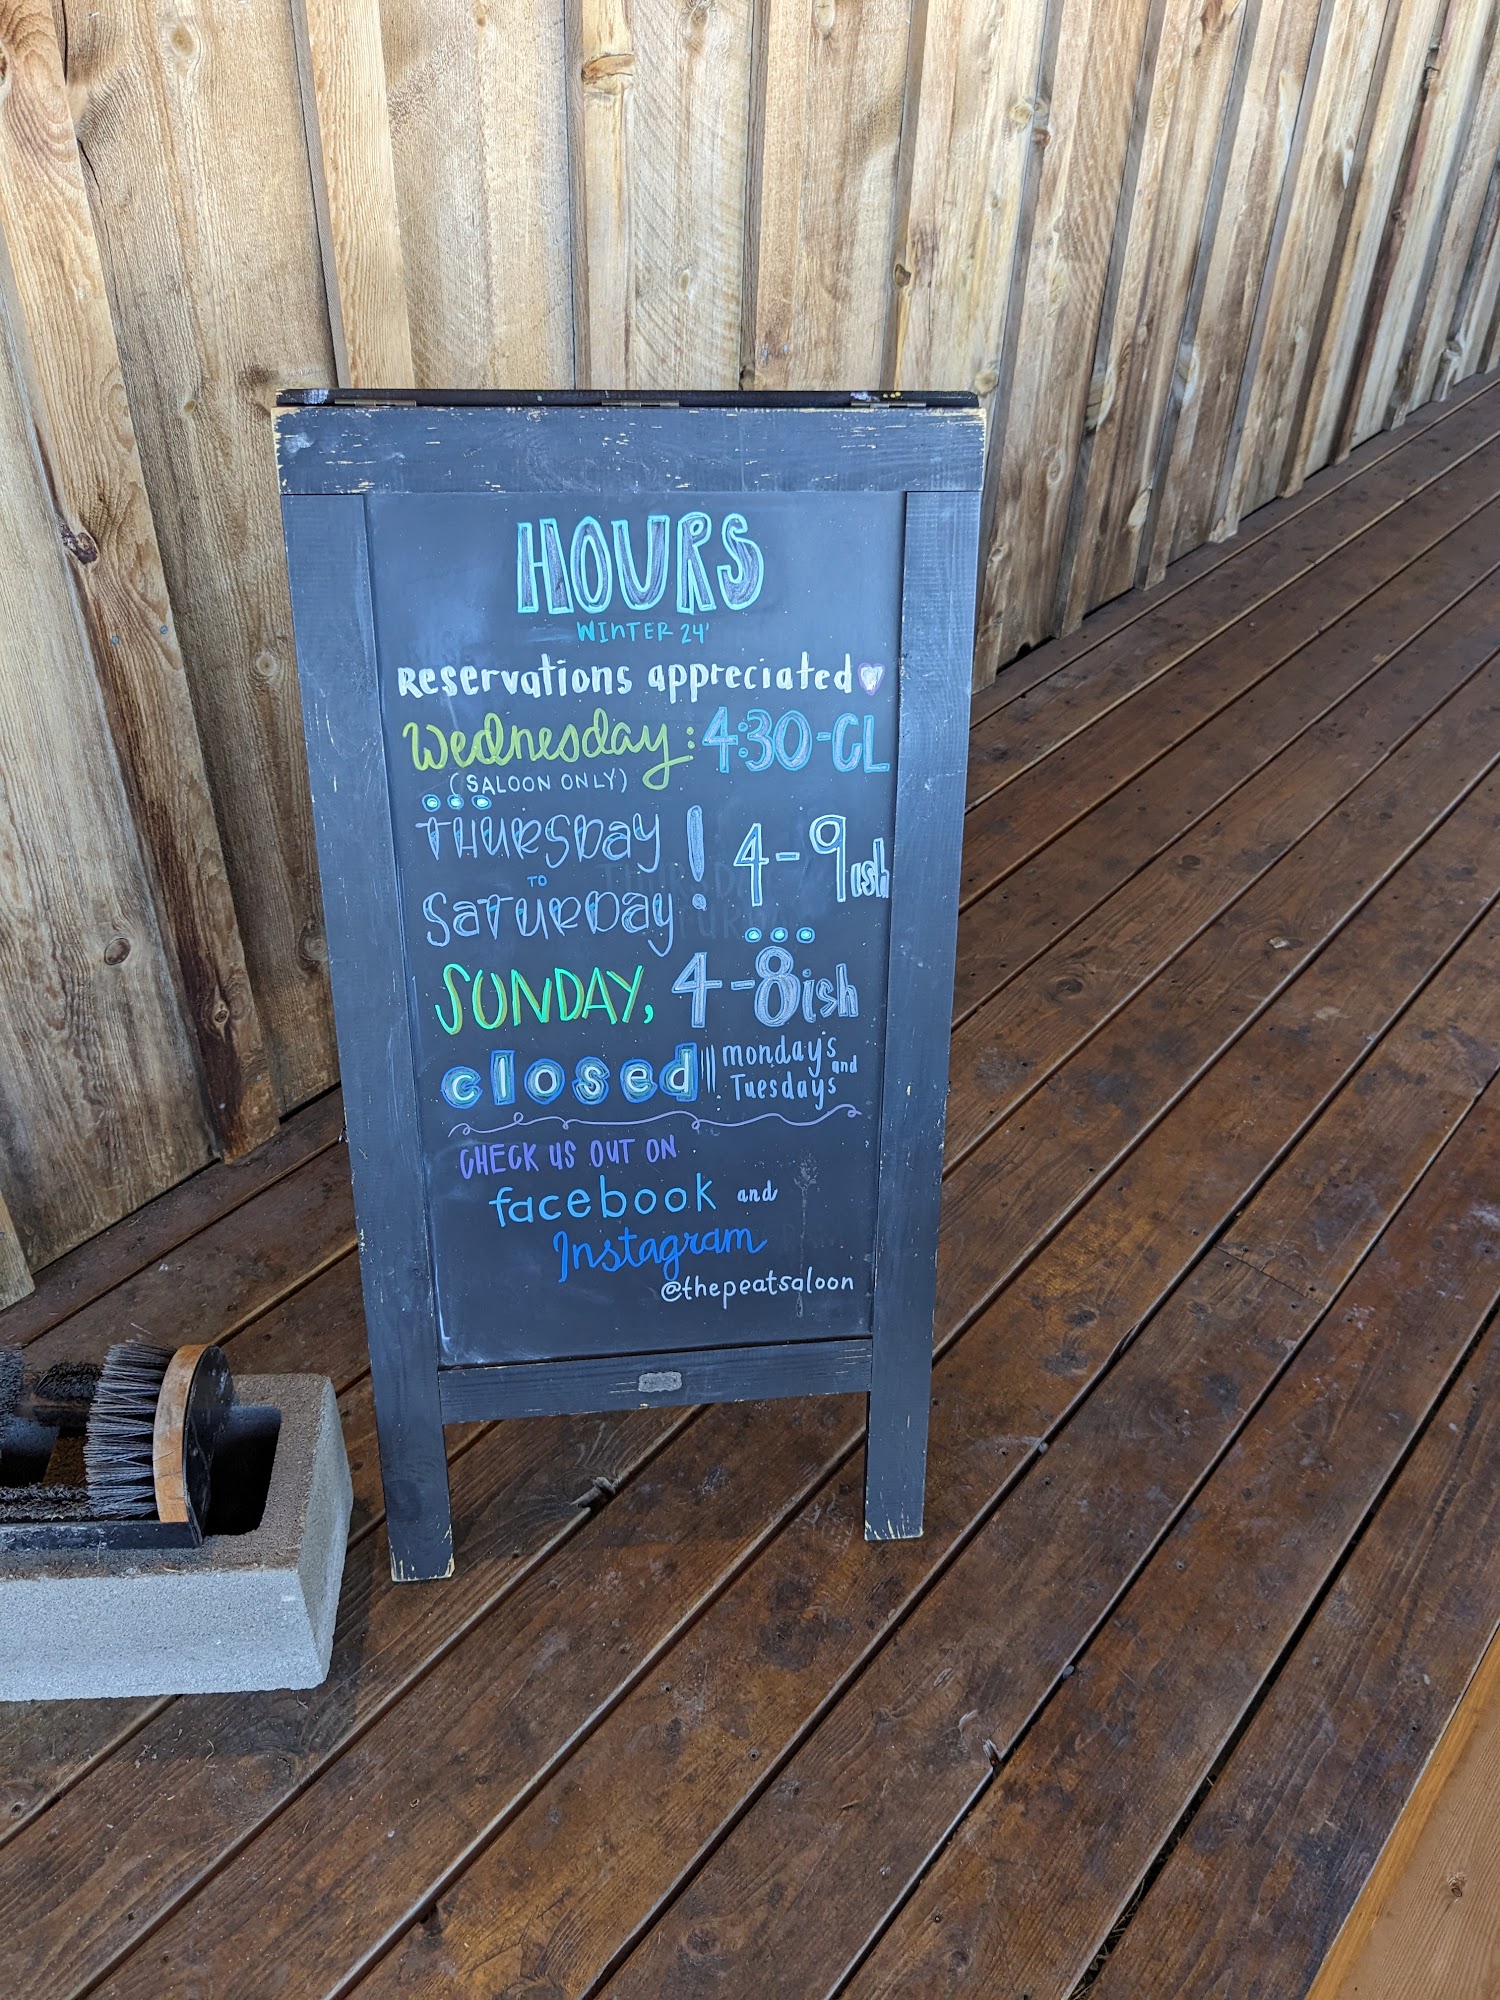 HOURS
WINTER 24'
Reservations appreciated
Wednesday: 4:30-CL
(SALOON ONLY)
THURSDay ! 4-9ish
TO
SaTURDay!
SUNDAY, 4-8ish
closed monday's and
Tuesdays
CHECK US OUT ON
facebook and
Instagram
@thepeatsaloon